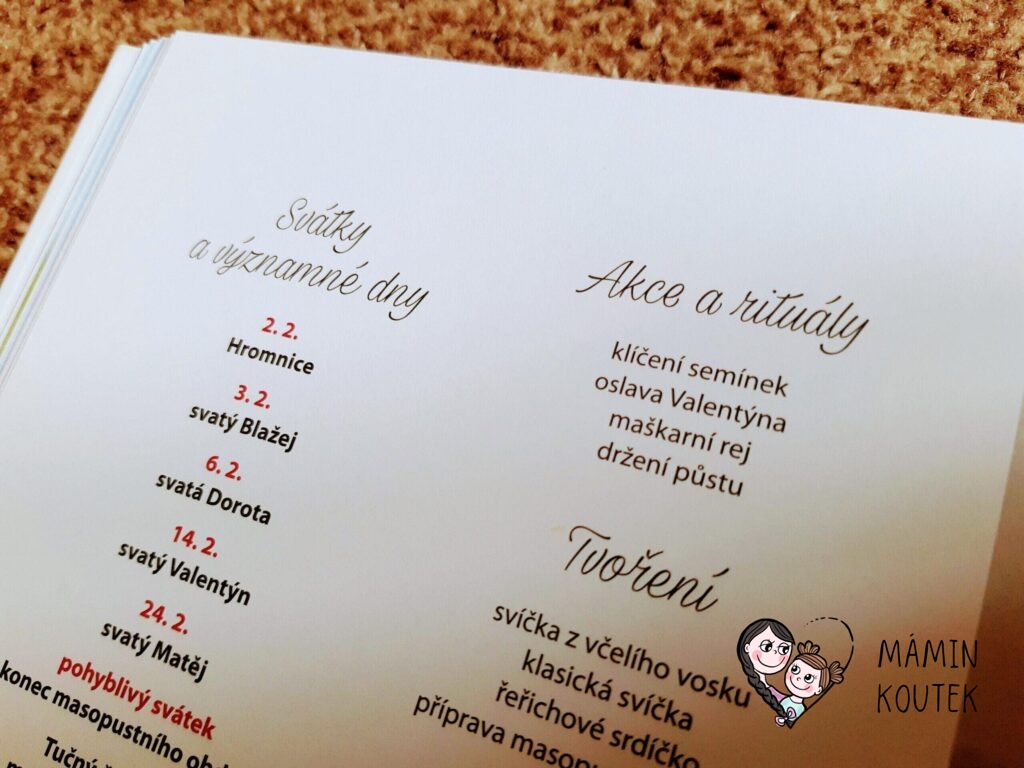 Svátky
a významné dny
2. 2.
Hromnice
3. 2.
svatý Blažej
6. 2.
svatá Dorota
14. 2.
svatý Valentýn
24. 2.
svatý Matěj
pohyblivý svátek
konec masopustního
Tučný
Akce a rituály
klíčení semínek
oslava Valentýna
maškarní rej
držení půstu
Tvoření
svíčka z včelího vosku
klasická svíčka
řeřichové srdíčko
příprava
MÁMIN
KOUTEK